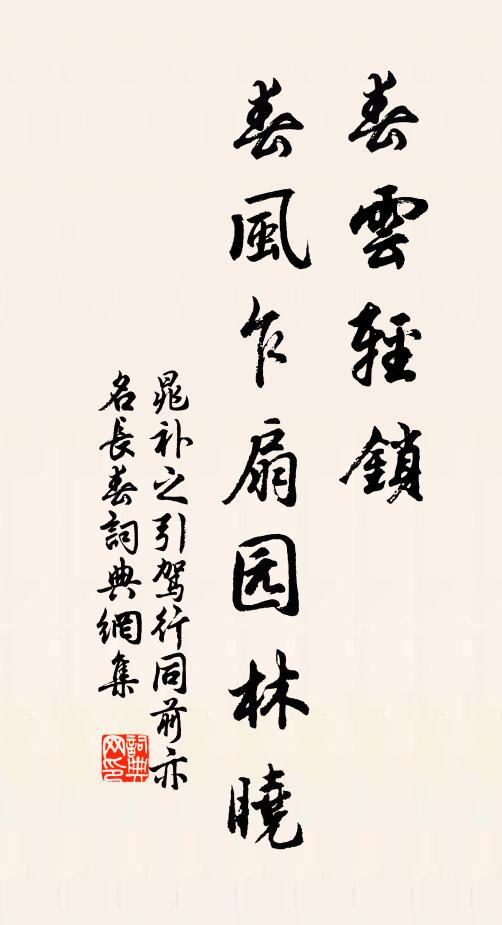 春雲輕鎖
春風乍扇园林曉
晁补之引駕行同前亦
名長春詞典網集
詞典
网印